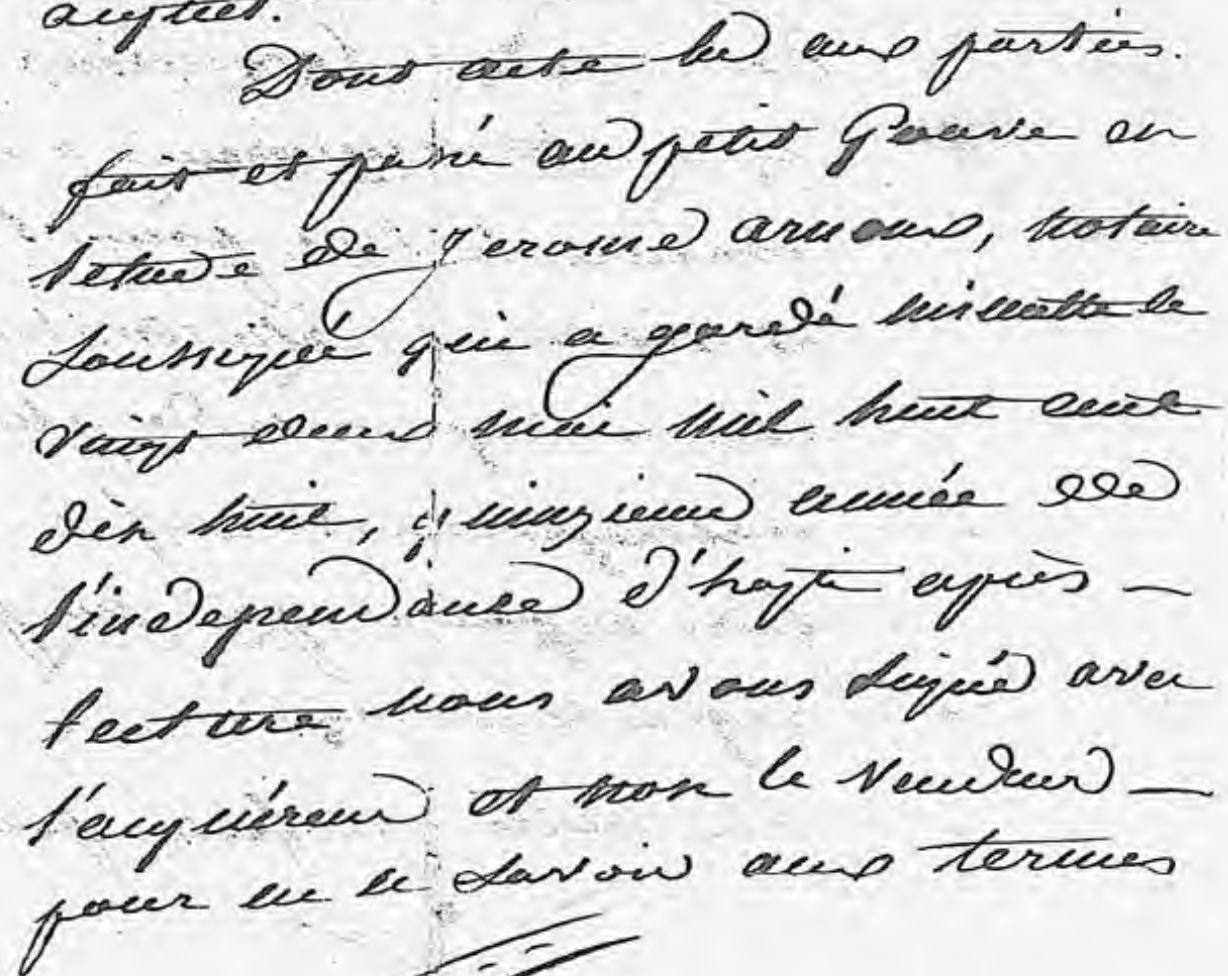 Dont acte lu aux parties.
fait et passé au petit Goave en
l'etude de Jerome arnoux, notaire
soussigné qui a gardé minutte le
vingt deux mai mil huit cent
dix huit, quinzieme année de
l'independance d'hayti après —
lecture nous avons signé avec
l'acquéreur et non le vendeur —
pour ne le savoir aux termes